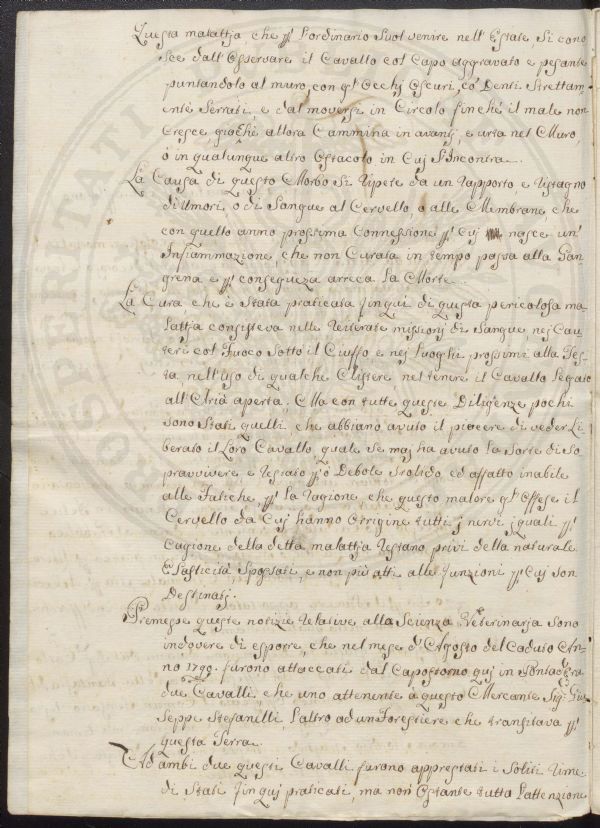 Questa malattja, che pr l'ordinario suol venire nell'Estate, si cono
sce dall'Osservare il Cavallo col Capo aggravato e pesante
puntandolo al muro, con gl'Occhj Oscuri, co' Denti strettam
ente serrati, e dal moversi in Circolo finché il male non
Cresce, giacchè allora Cammina in avantj, e urta nel Muro,
ò in qualunque altro Ostacolo in Cuj s'Incontra.
La Causa di questo Morbo si ripete da un rapporto, e ristagno
di Umori, o di Sangue al Cervello, o alle Membrane, che
con quello anno prossima Connessione pr Cuj nasce un'
Infiammazione, che non Curata in tempo passa alla Gan-
grena e pr consegueza arreca la Morte.
La Cura che è stata praticata finqui di questa pericolosa ma
lattja consisteva nelle reiterate missionj di Sangue nej Cau
terj col Fuoco sotto il Ciuffo e nej luoghi prossimi alla Tes
ta, nell'Uso di qualche Clistere, nel tenere il Cavallo legato
all'Aria aperta. Ma con tutte queste Diligenze pochi
sono stati quelli, che abbiano avuto il piacere di veder Li
berato il Loro Cavallo, quale se maj ha avuto la sorte di so
pravvivere, e restato però Debole stolido, ed affatto inabile
alle Fatiche, pr la ragione, che questo malore gl'Offese il
Cervello da Cuj hanno Origine tutti j nervi, j quali pr
Cagione della detta malattja restano privi della naturale
Elasticità, Spossati, e non più atti alle funzioni pr Cuj son
Destinatj.
Premesse queste notizie relative alla Scienza Veterinarja sono
indovere di esporre, che nel mese d'Agosto del Caduto An-
no 1790. furono attaccati dal Capostorno quj in Pontadera
due Cavalli, che uno attenente a questo Mercante Sigr Giu
seppe Stefanelli, l'altro ad un Forestiere che transitava pr
questa Terra.
Ad ambi due questi Cavalli furono apprestati i soliti rime
di stati finquj praticati, ma non Ostante tutta l'attenzione